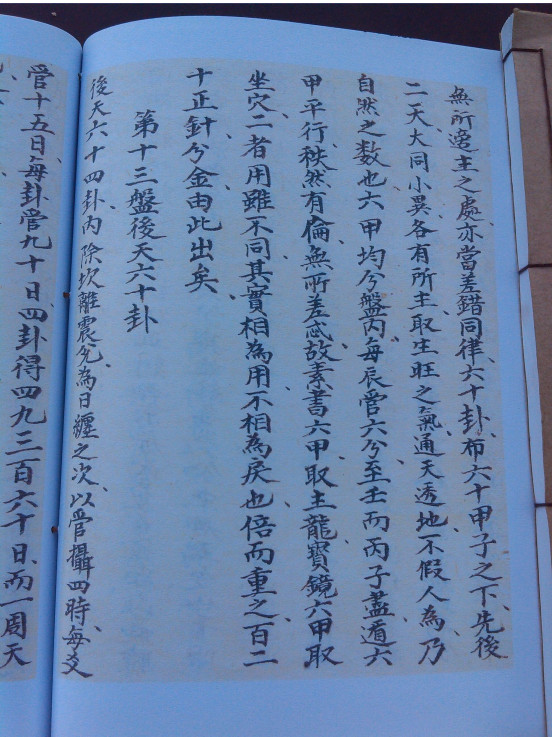 無所適主之處亦當差錯同律六十卦布六十甲子之下先後
二天大同小異各有所主取生旺之氣通天透地不假人為乃
自然之数也六甲均兮盤內每辰管六兮至壬而丙子盡遁六
甲平行秩然有倫無所差忒故素書六甲取主龍寶鏡六甲取
坐穴二者用雖不同其實相為用不相為戾也倍而重之百二
十正針兮金由此出矣
第十三盤後天六十卦
後天六十四卦內除坎離震兊為日纏之次以管攝四時每爻
管十五日每卦管九十日四卦得四九三百六十日而一周天